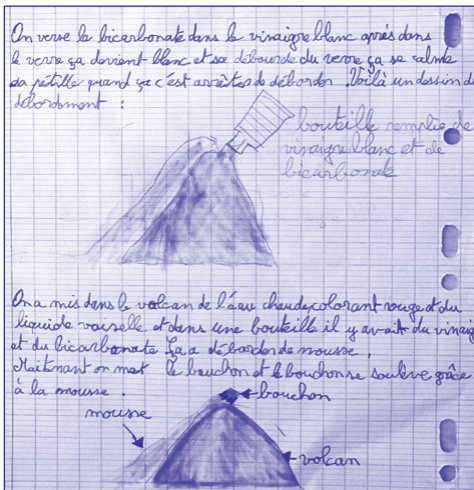 On verse le bicarbonate dans le vinaigre blanc après dans
le verre ça devient blanc et sa débourde du verre ça se calme
sa pétille quand ça c'est arrêtes de déborder. Voilà un dessin du
débordement :
bouteille remplie de
vinaigre blanc et de
bicarbonate
On a mis dans le volcan de l'eau chaude, colorant rouge et du
liquide vaisselle et dans une bouteille il y avait du vinaig
et du bicarbonate. Sa a déborder de mousse.
Maitenant on met le bouchon et le bouchon se soulève grâce
à la mousse.
bouchon
mousse
volcan